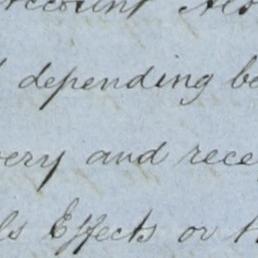 Account Als
depending be
very and rece
ls Effects or th